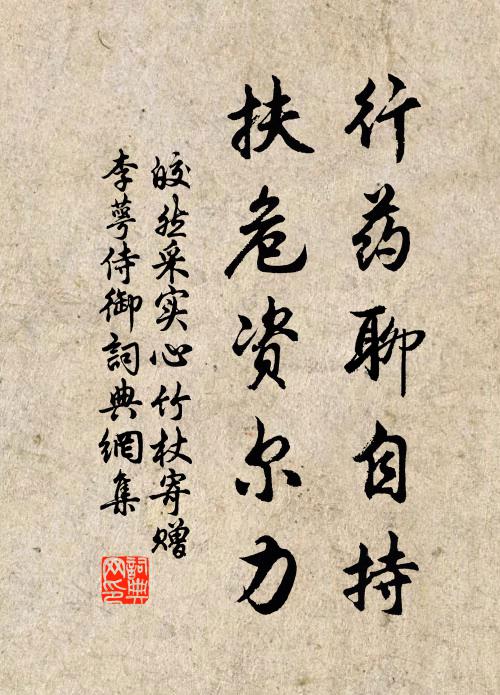 行药聊自持
扶危资尔力
皎然采实心竹杖寄赠
李萼侍御詞典網集
詞典
网印